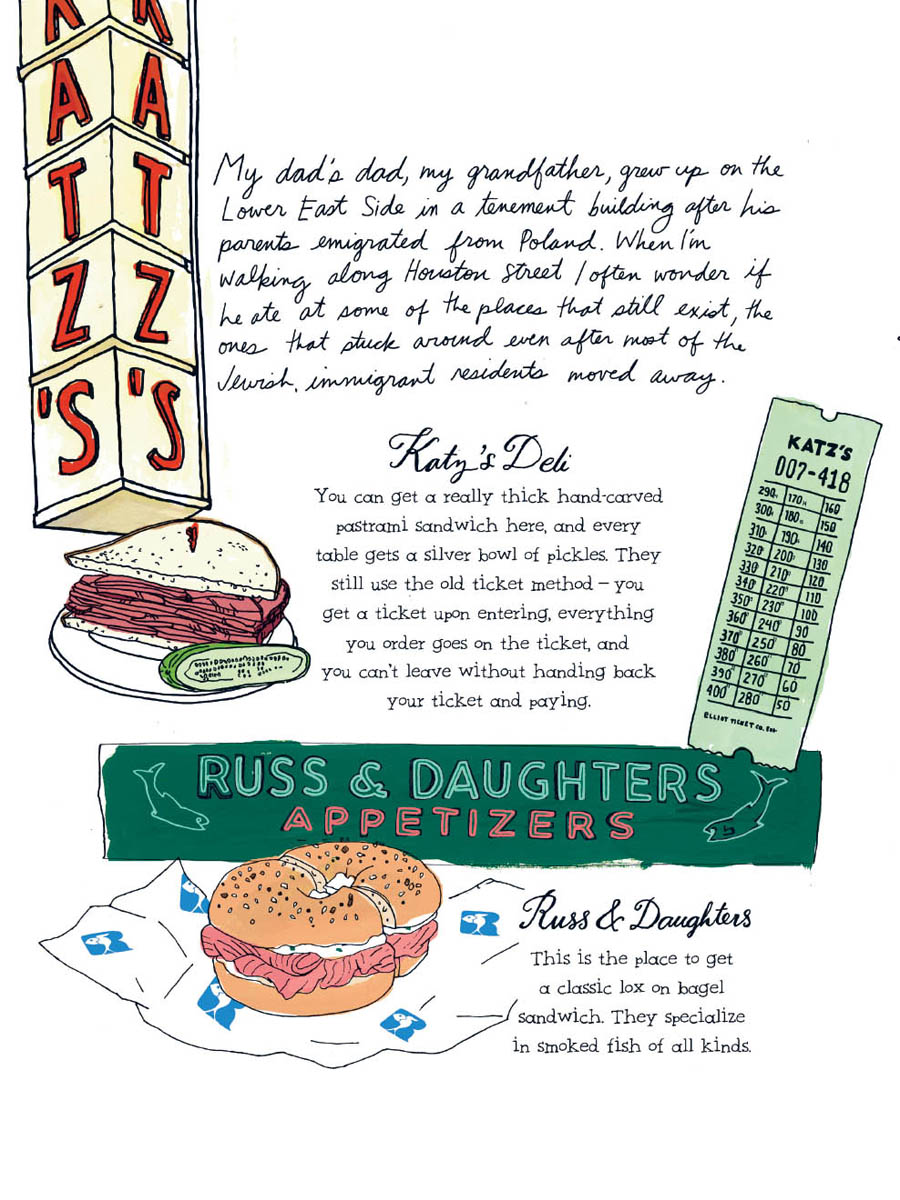 KATZ'S
KATZ'S
My dad's dad, my grandfather, grew up on the
Lower East Side in a tenement building after his
parents emigrated from Poland. When I'm
walking along Houston Street I often wonder if
he ate at some of the places that still exist, the
ones that stuck around even after most of the
Jewish, immigrant residents moved away.
Katz's Deli
You can get a really thick hand-carved
pastrami sandwich here, and every
table gets a silver bowl of pickles. They
still use the old ticket method – you
get a ticket upon entering, everything
you order goes on the ticket, and
you can't leave without handing back
your ticket and paying.
KATZ'S
007-418
290 170 160
300 180 150
310 190 140
320 200 130
330 210 120
340 220 110
350 230 100
360 240 90
370 250 80
380 260 70
390 270 60
400 280 50
ELLIOT TICKET CO.
RUSS & DAUGHTERS
APPETIZERS
Russ & Daughters
This is the place to get
a classic lox on bagel
sandwich. They specialize
in smoked fish of all kinds.